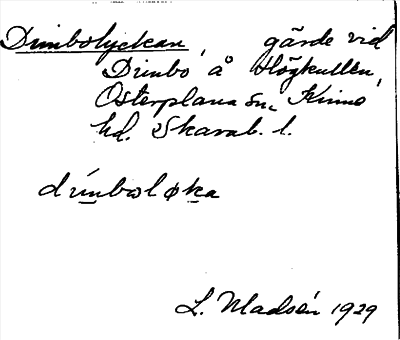 Dimbolyckan, gärde vid
Dimbo å Högkullen,
Österplana sn, Kinne
hd. Skarab. l.
dímbωløka
L. Madsén 1929